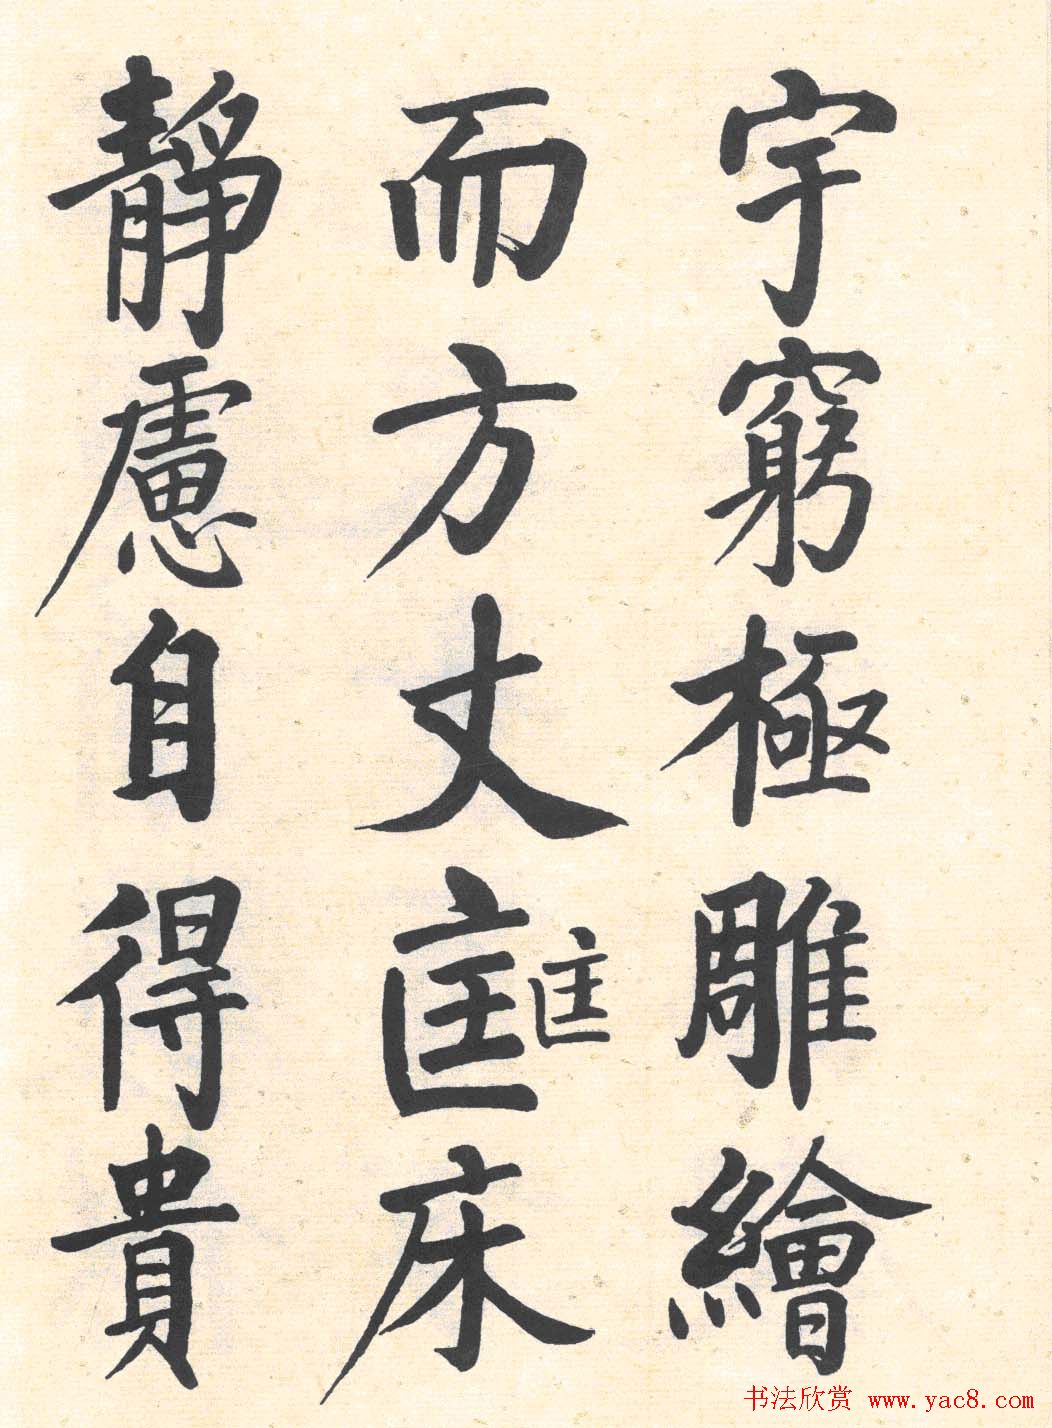 宇窮極雕繪
而方丈匡匡床
靜慮自得貴
书法欣赏 www.yac8.com